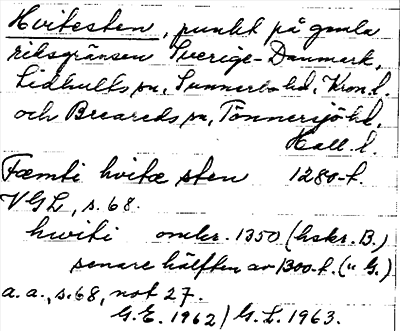 Hvitesten, punkt på gamla
riksgränsen Sverige-Danmark,
Lidhults sn, Sunnerbo hd, Kron. l.
och Breareds sn, Tönnersjö hd,
Hall. l.
Fæmti hvitæ sten 1280-t.
VGL, s. 68.
hwiti omkr. 1350 (hskr. B.)
senare hälften av 1300-t. (" G.)
a. a., s. 68, not 27.
G. E. 1962 / G. L. 1963.